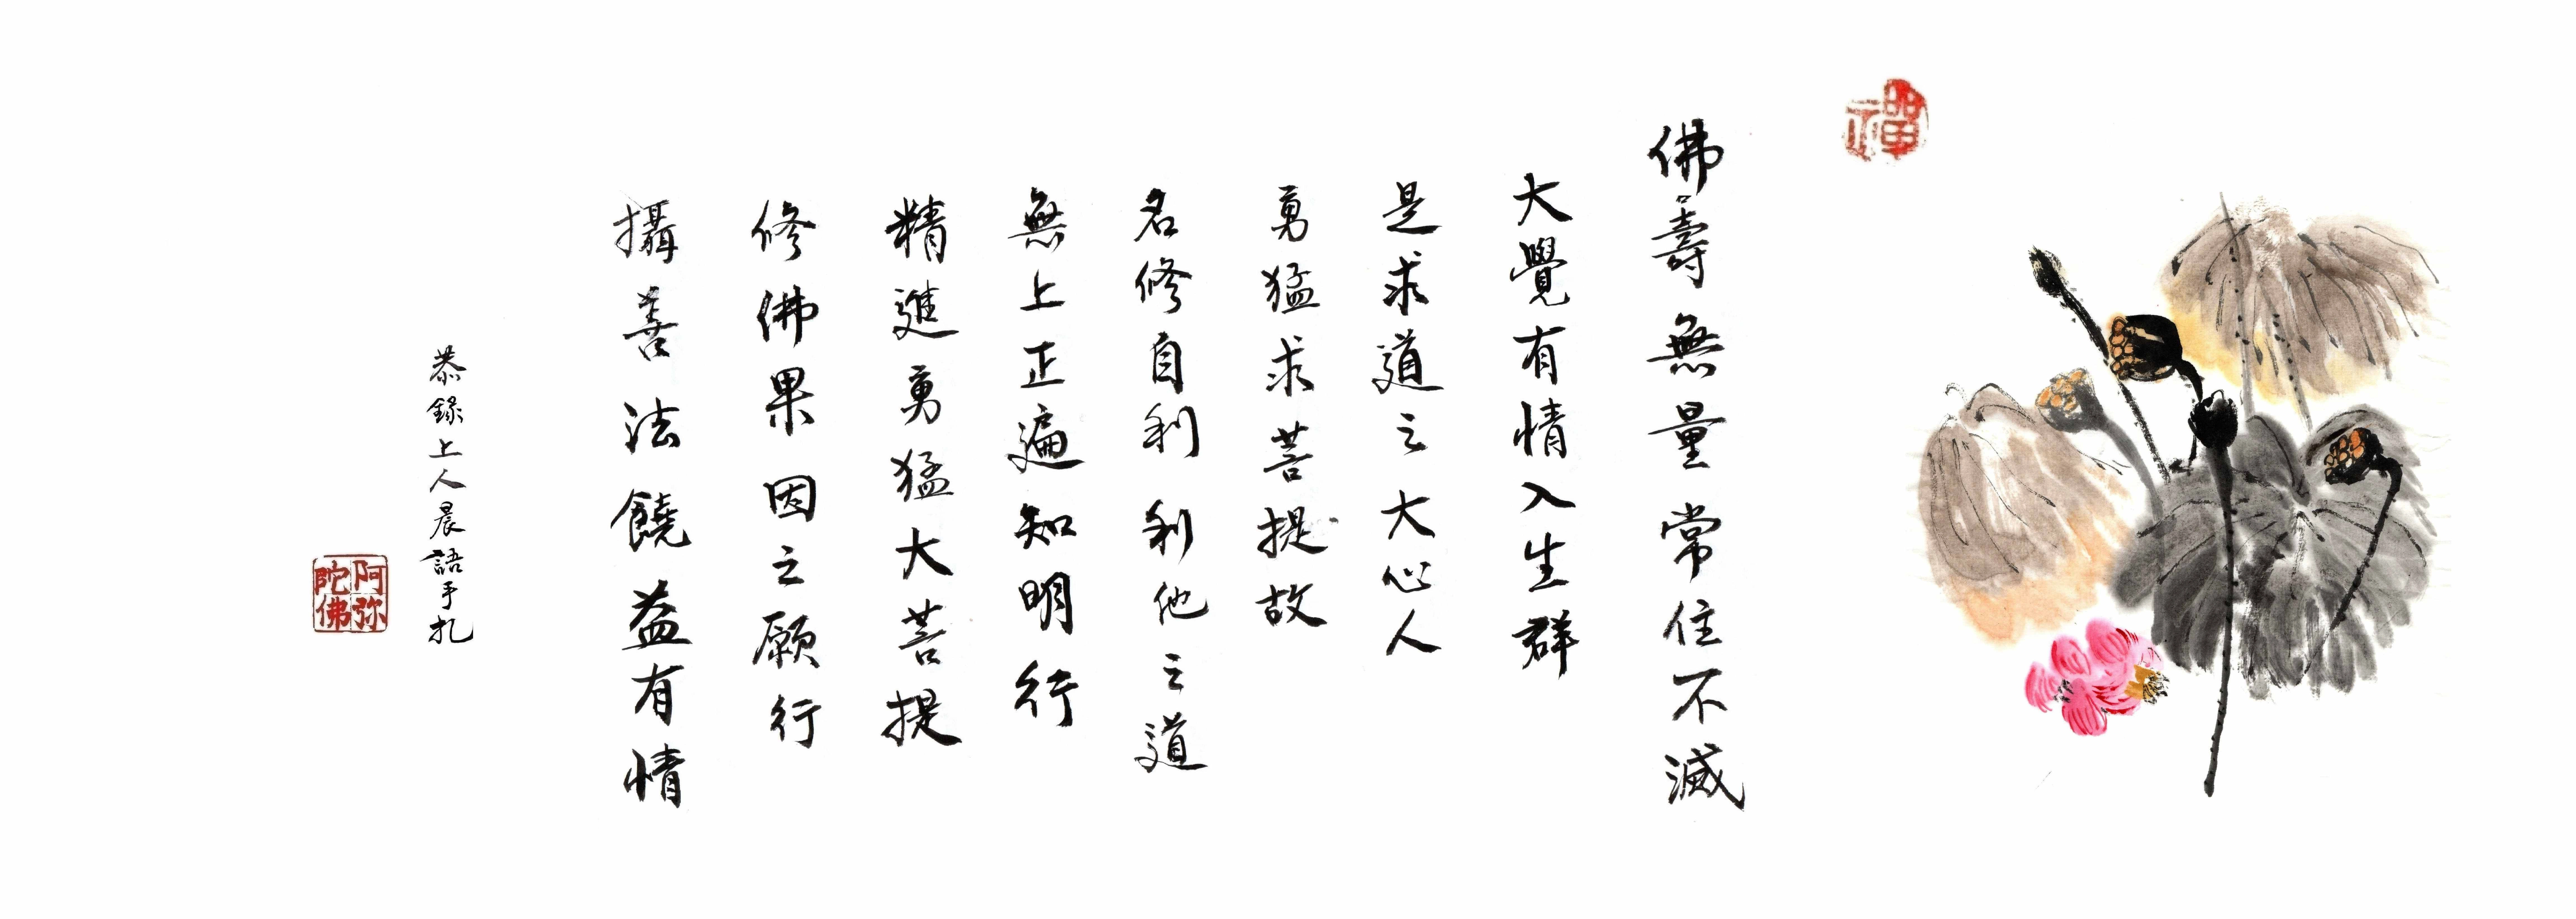 禪
佛壽無量常住不滅
大覺有情入生群
是求道之大心人
勇猛求菩提故
名修自利利他之道
無上正遍知明行
精進勇猛大菩提
修佛果因之願行
攝善法饒益有情
恭錄上人晨語手扎
阿弥陀佛